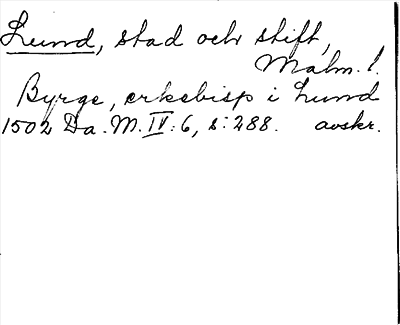 Lund, stad och stift,
Malm. l.
Byrge, erkebisp i Lund
1502 Da. M. IV: 6, s: 288. avskr.